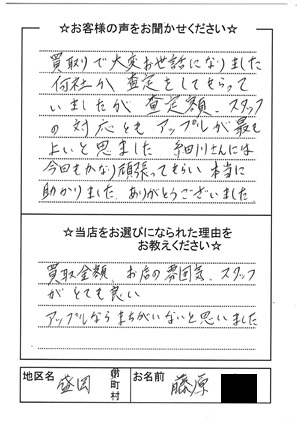 ☆お客様の声をお聞かせください☆
買取りで大変お世話になりました
何社か査定をしてもらって
いましたが査定額、スタッフ
の対応ともアップルが最も
よいと思いました 細川さんには
今回もかなり頑張ってもらい本当に
助かりました ありがとうございました
☆当店をお選びになられた理由を
お教えください☆
買取金額、お店の雰囲気、スタッフ
がとても良い
アップルならまちがいないと思いました
地区名 盛岡 市町村 お名前 藤原